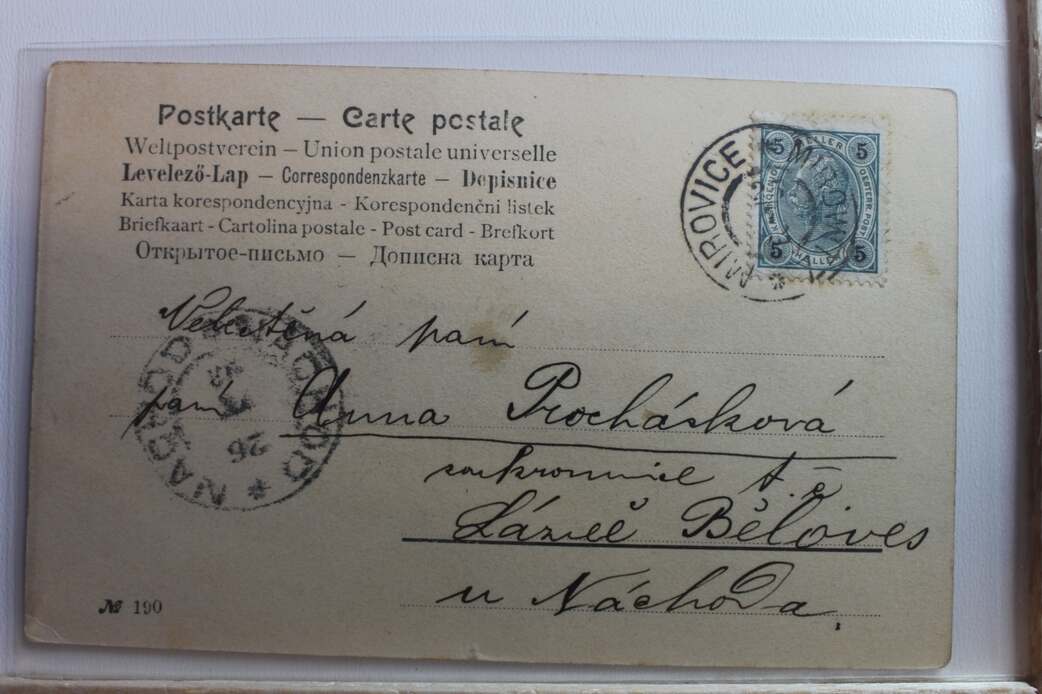 Postkarte — Carte postale
Weltpostverein – Union postale universelle
Levelező-Lap – Correspondenzkarte – Dopisnice
Karta korespondencyjna - Korespondenční listek
Briefkaart - Cartolina postale - Post card - Brefkort
Открытое-письмо — Дописна карта
MIROVICE * MIROWITZ *
5 HALLER 5
OESTERR. POST
5 HALLER 5
Velectěná paní
paní Anna Procházková
soukromnice t. č.
Lázně Běloves
u Náchoda.
NACHOD
26
№ 190